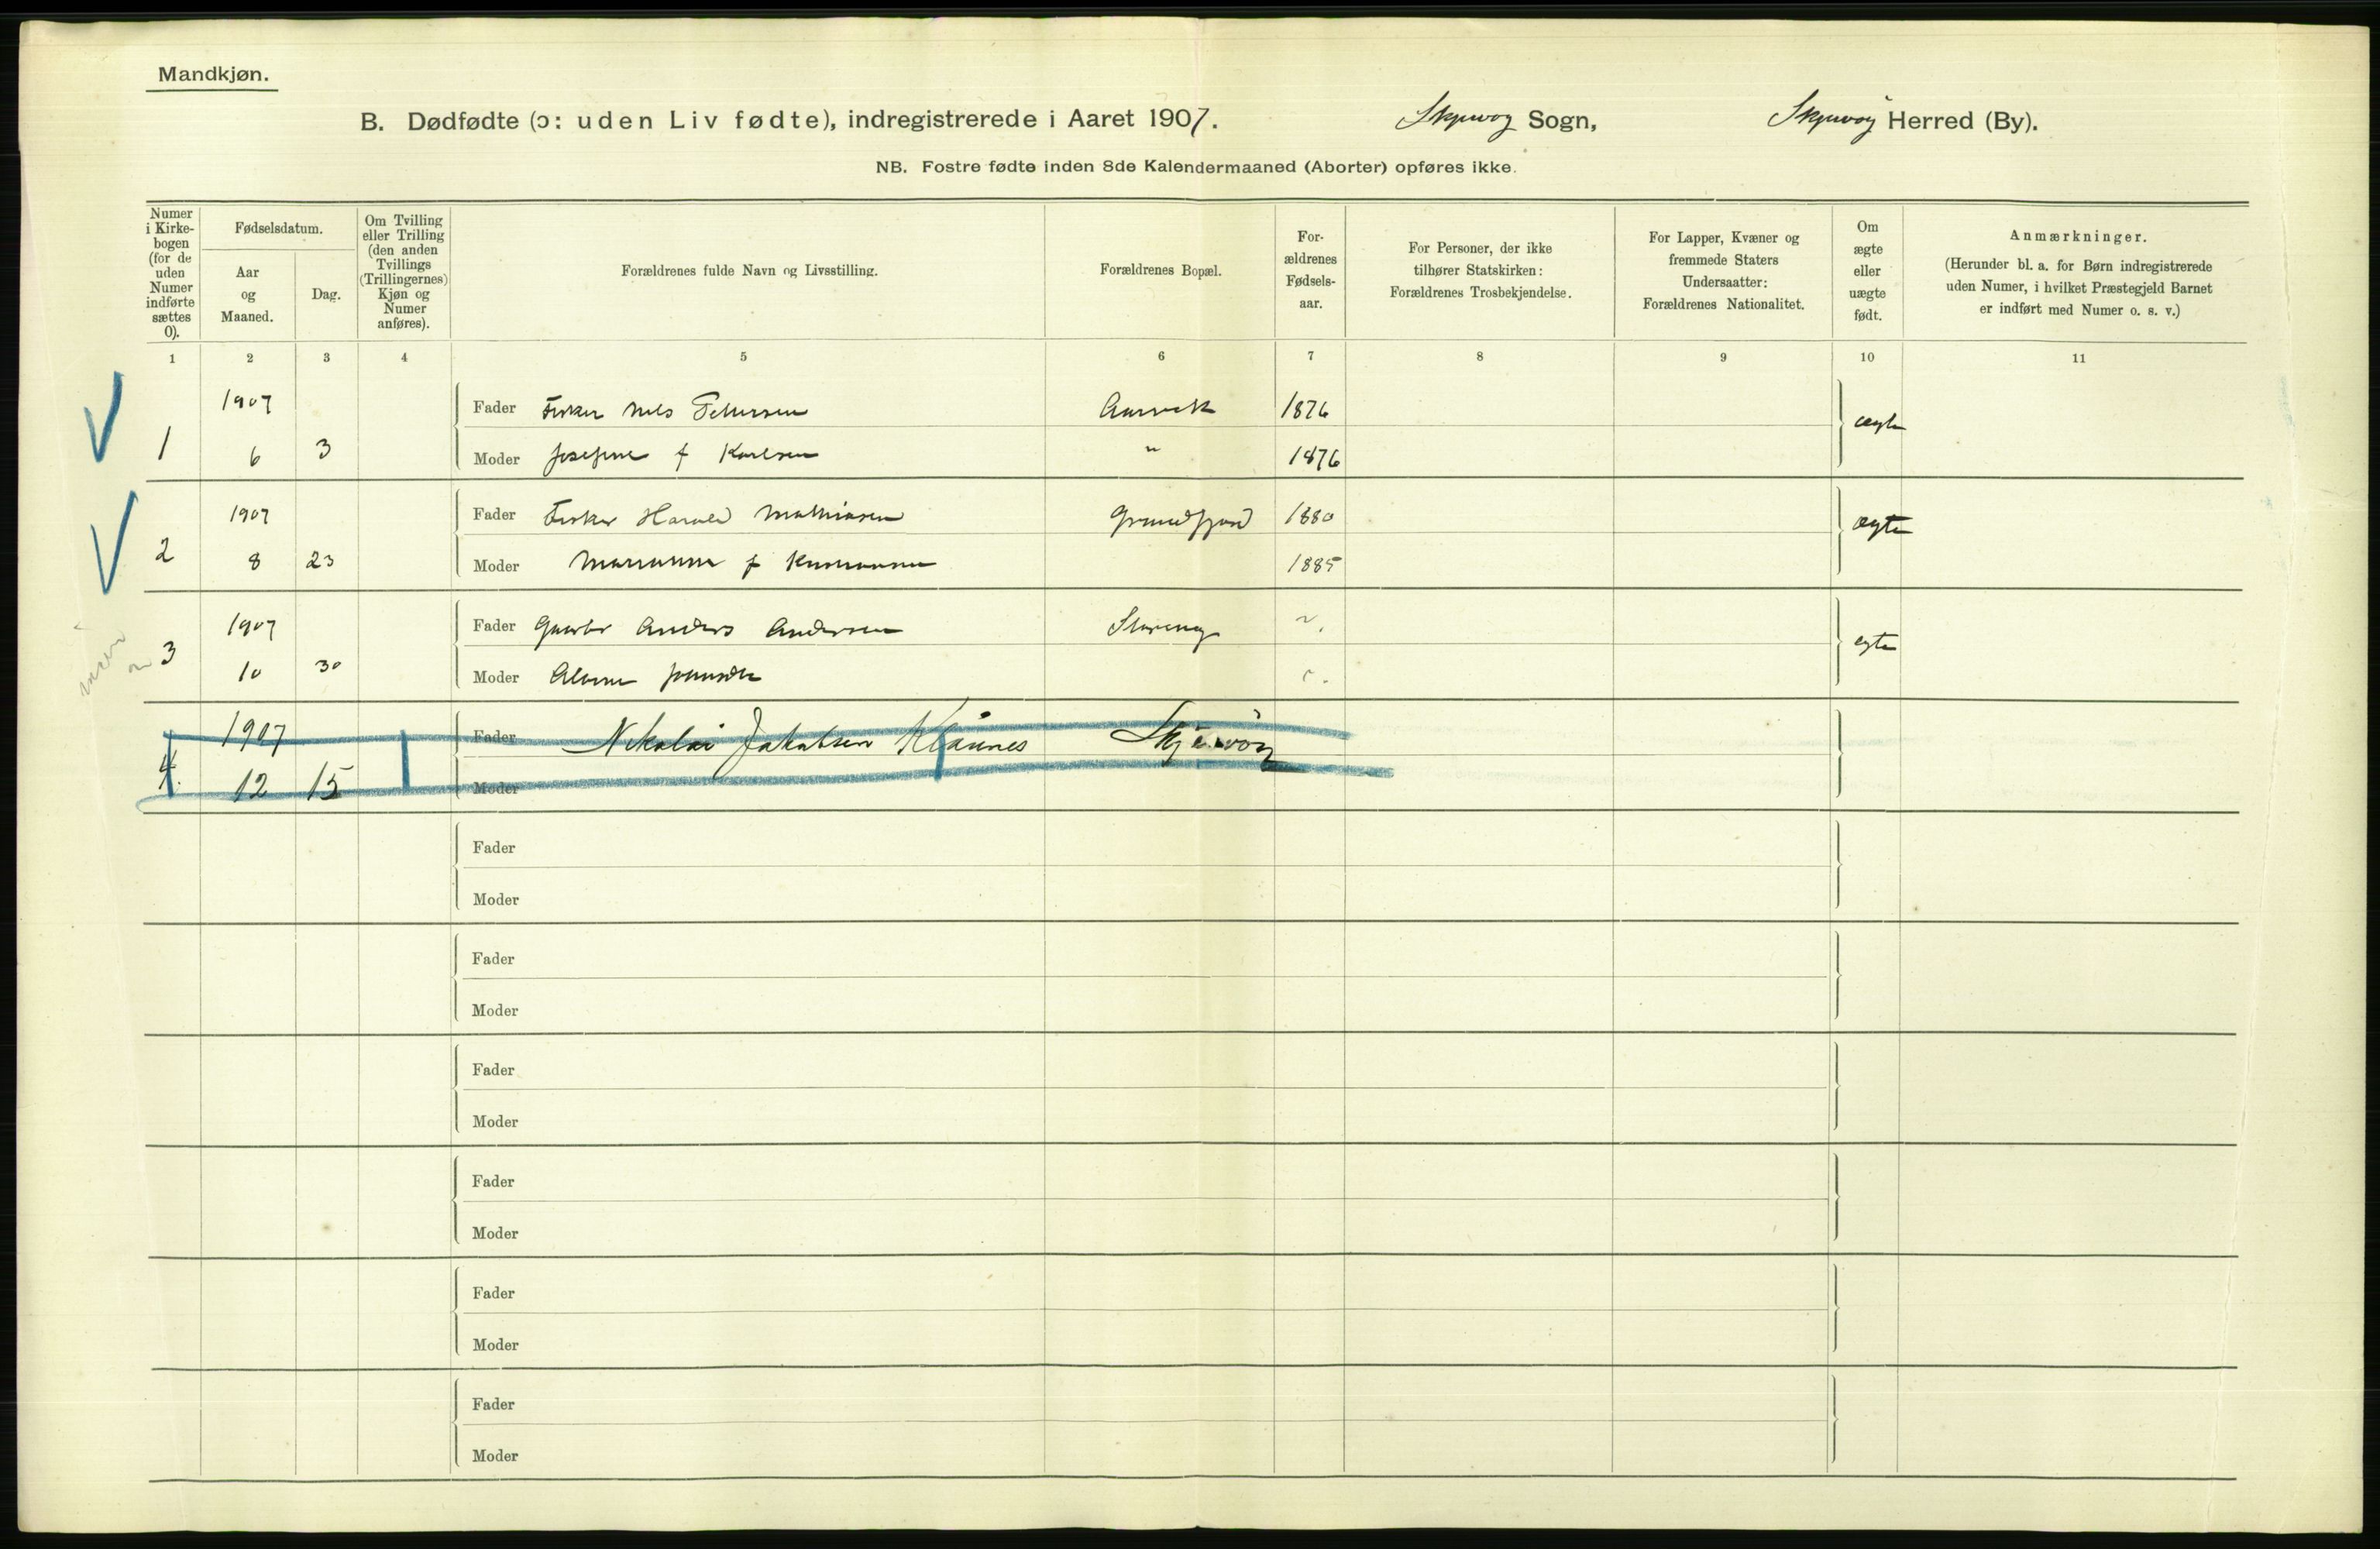 Mandkjøn.
B. Dødfødte (ɔ: uden Liv fødte), indregistrerede i Aaret 1907. Skjervøy Sogn, Skjervøy Herred (By).
NB. Fostre fødte inden 8de Kalendermaaned (Aborter) opføres ikke.
Numer i Kirke-bogen (for de uden Numer indførte sættes 0).
Fødselsdatum.
Aar og Maaned.
Dag.
Om Tvilling eller Trilling (den anden Tvillings (Trillingernes) Kjøn og Numer anføres).
Forældrenes fulde Navn og Livsstilling.
Forældrenes Bopæl.
For-ældrenes Fødsels-aar.
For Personer, der ikke tilhører Statskirken: Forældrenes Trosbekjendelse.
For Lapper, Kvæner og fremmede Staters Undersaatter: Forældrenes Nationalitet.
Om ægte eller uægte født.
Anmærkninger.
(Herunder bl. a. for Børn indregistrerede uden Numer, i hvilket Præstegjeld Barnet er indført med Numer o. s. v.)
1 2 3 4 5 6 7 8 9 10 11
1907 Fader Fisker Nils Pedersen 1876 ægte
1 6 3 Moder Josefine f Karlsen " 1876
1907 Fader Fisker Harald Mathiasen Grundfjord 1880 ægte
2 8 23 Moder Marianna f Kristiansen 1885
1907 Fader Anders Andersen egte
3 10 30 Moder
1907 Fader Nikolai Jakobsen Skjervöy
4. 12 15 Moder
Fader
Moder
Fader
Moder
Fader
Moder
Fader
Moder
Fader
Moder
Fader
Moder